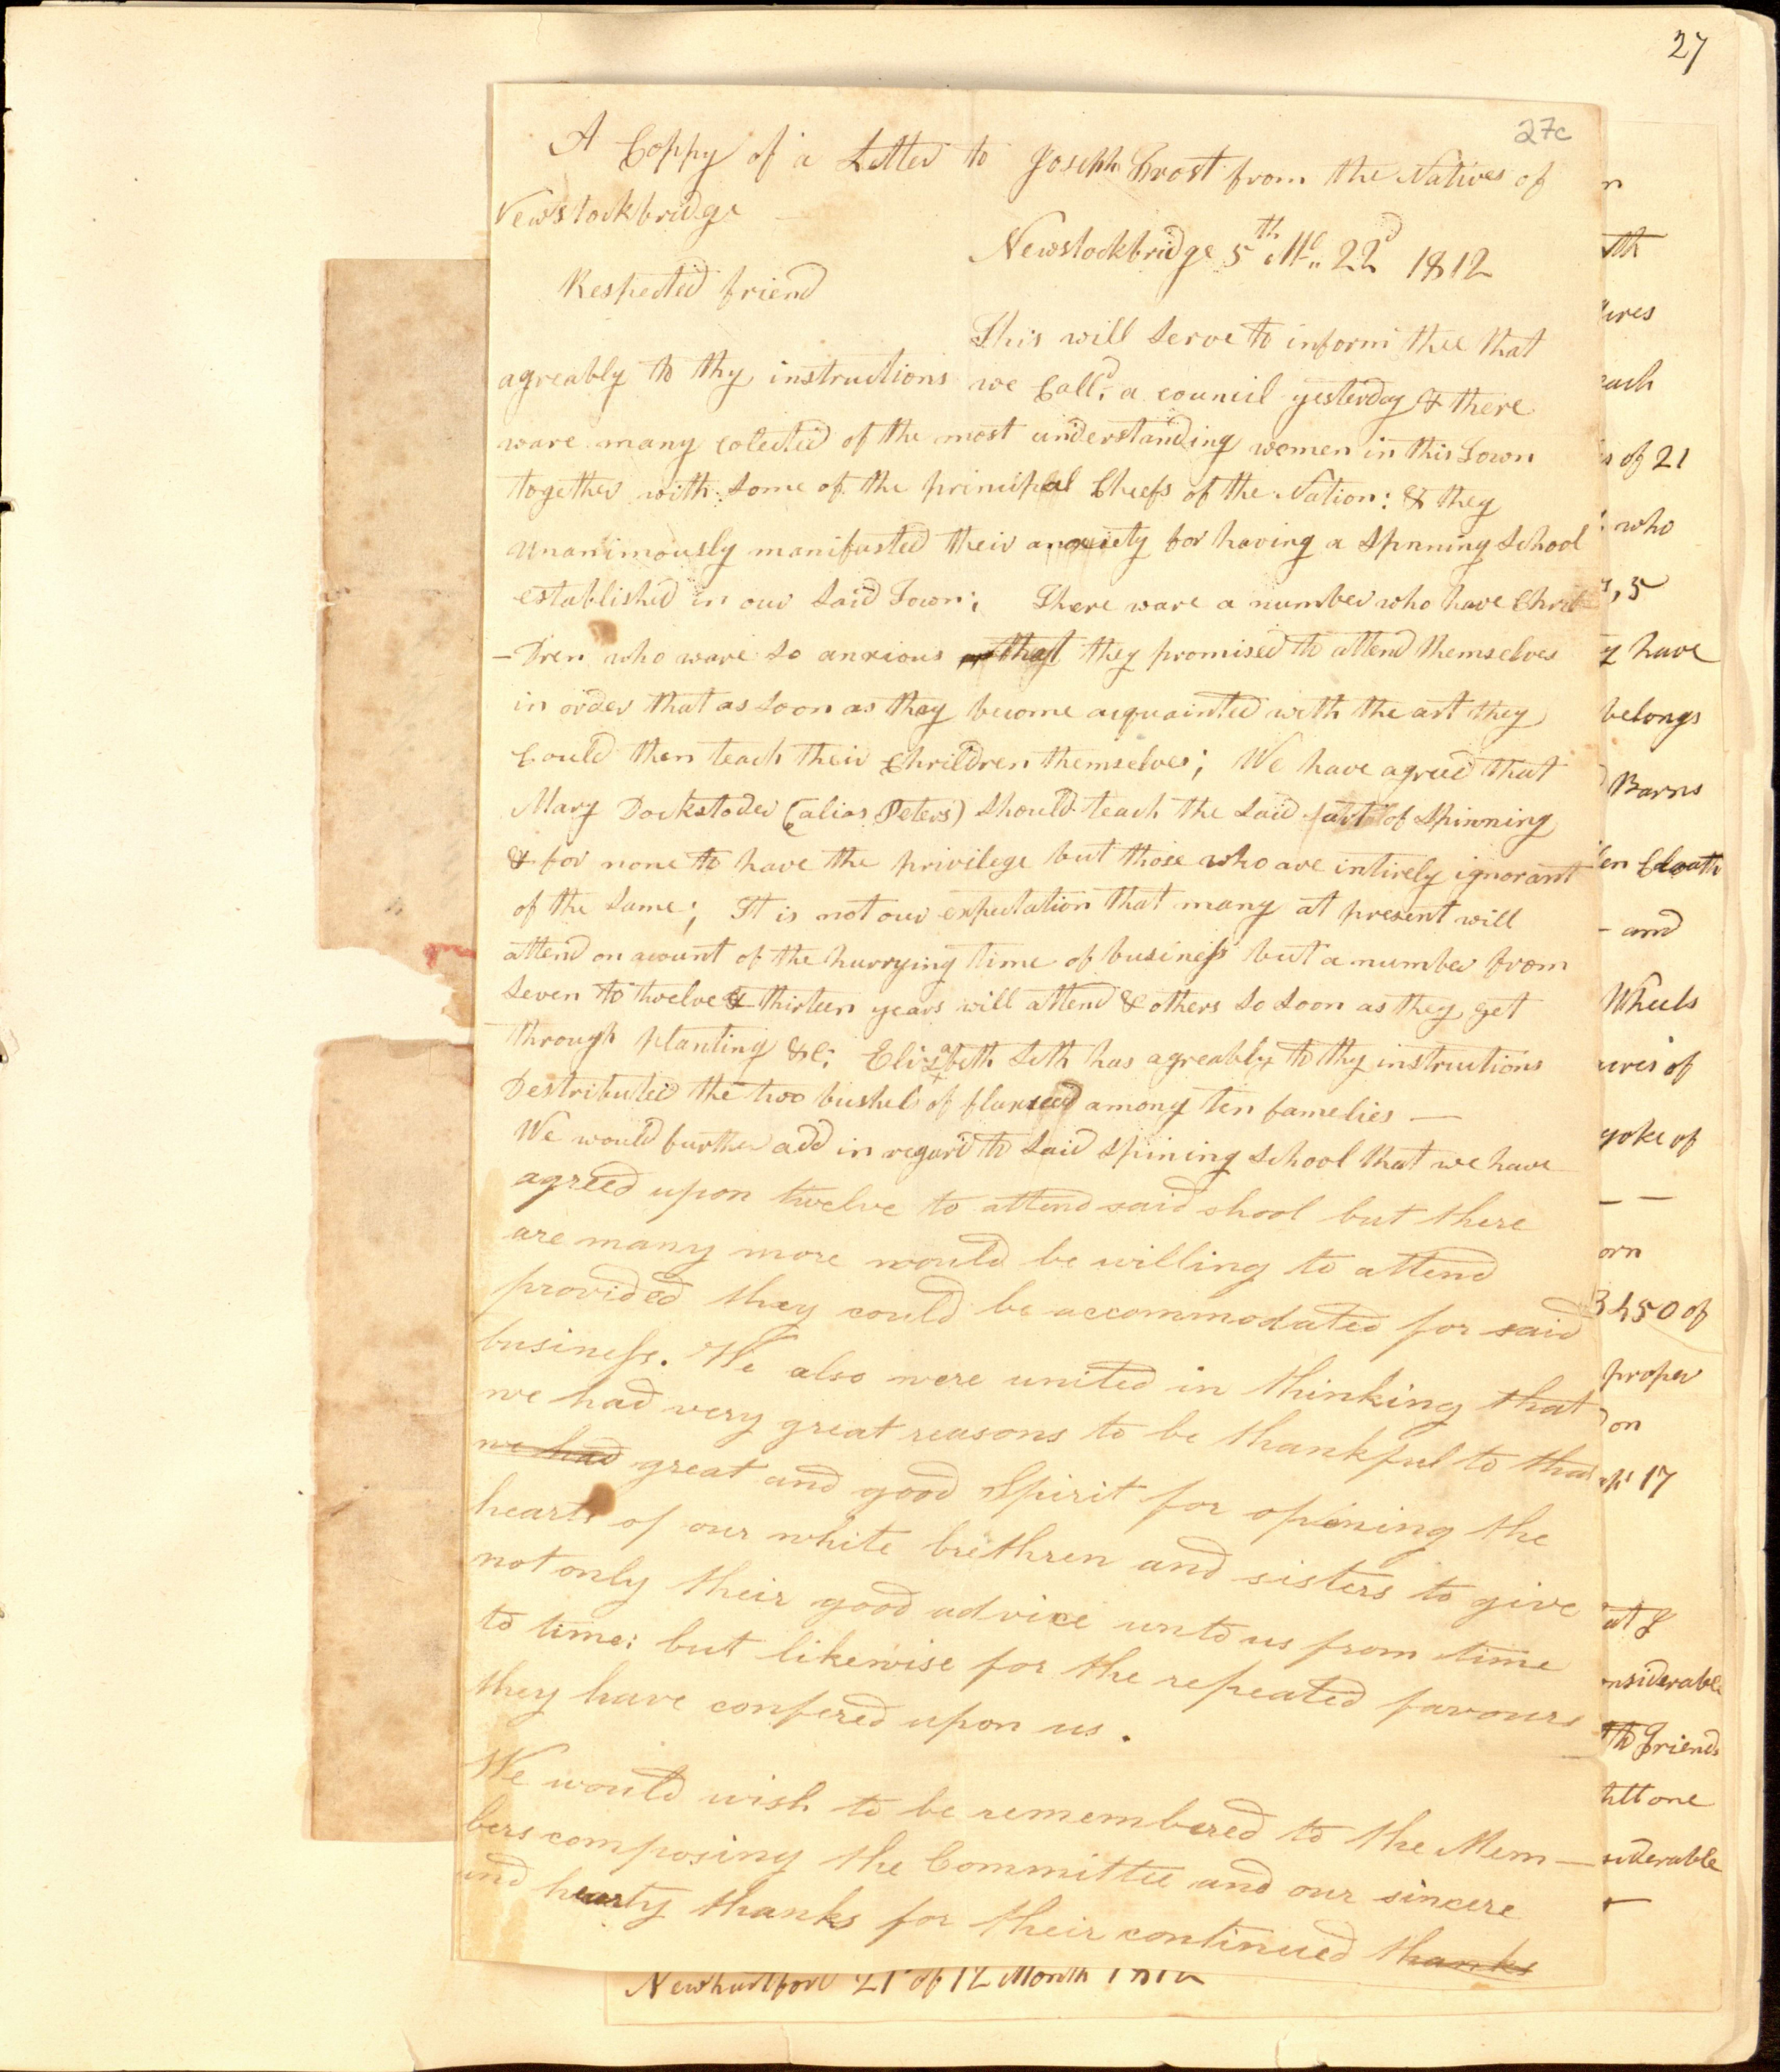 27
27c
A Coppy of a Letter to Joseph Frost from the Natives of
Newstockbridge
Newstockbridge 5th Mo. 22d 1812
Respected friend
This will serve to inform thee that
agreably to thy instructions we Calld. a council yesterday & there
ware many colected of the most understanding women in this Town
together with some of the principal Cheefs of the Nation: & they
Unanimously manifasted their anxiety for having a Spnning School
established in our said Town; There ware a number who have Chril
-Dren who ware so anxious that they promised to attend themselves
in order that as soon as they become acquainted with the art they
Could then teach their Chrildren themselves; We have agreed that
Mary Dockstoder (alias Peters) should teach the said art of Spinning
& for none to have the privilege but those who are intirely ignorant
of the same; It is not our expectation that many at present will
attend on acount of the hurrying time of business but a number from
Seven to twelve & thirteen years will attend & others so soon as they get
through planting &c; Elizabeth Seth has agreably to thy instructions
Destributed the two bushels of flaxseed among ten famelies —
We would further add in regard to said spining school that we have
agreed upon twelve to attend said shool but there
are many more would be willing to attend
provided they could be accommodated for said
business. We also were united in thinking that
we had very great reasons to be thankful to that
we had great and good Spirit for opening the
hearts of our white brethren and sisters to give
not only their good advice unto us from time
to time: but likewise for the repeated favours
they have confered upon us.
We would wish to be remembered to the Mem—
bers composing the Committee and our sincere
and hearty thanks for their continued thanks
Newhartford 21 of 12 Month
n
th
ures
each
s of 21
who
, 5
y have
belongs
Barns
en Cloath
- and
Wheels
acres of
yoke of
— —
orn
450 of
proper
on
17
at 8
onsiderable
friends
one
siderable